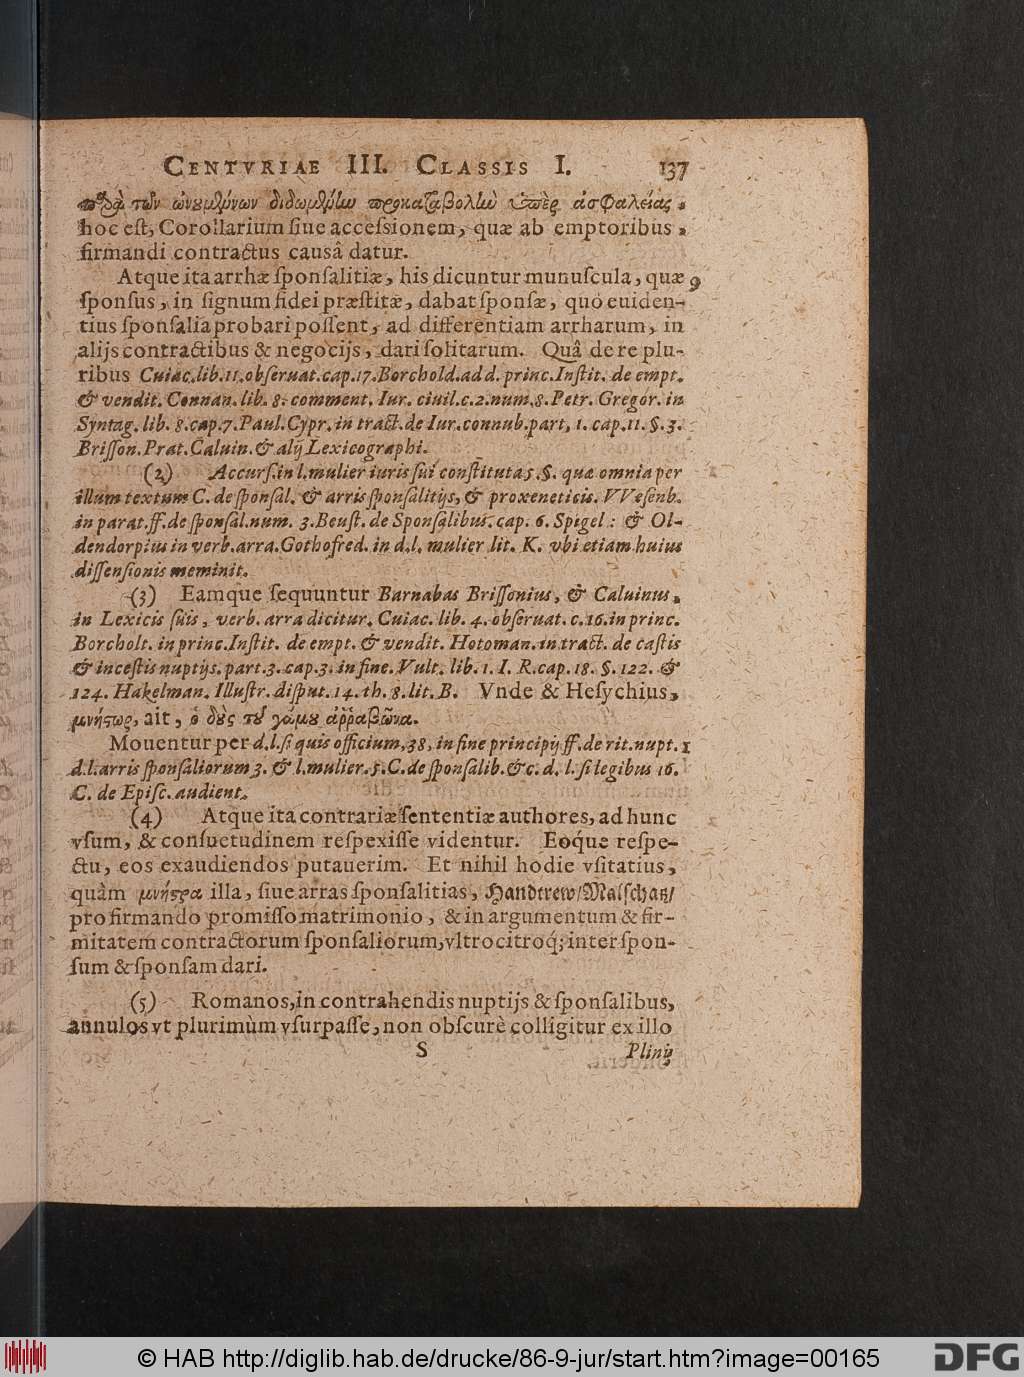 CENTVRIAE III. CLASSIS I. 137
παρὰ τῶν ὠνουμένων διδωμένω προκαταβολὴ ὑπὲρ ἀσφαλείας.
hoc eſt, Corollarium ſiue acceſsionem, quæ ab emptoribus
firmandi contractus causâ datur.
Atque ita arrhæ ſponſalitiæ, his dicuntur munuſcula, quæ
ſponſus, in ſignum fidei præſtitæ, dabat ſponſæ, quò euiden-
tius ſponſalia probari poſſent, ad differentiam arrharum, in
alijs contractibus & negocijs, dari ſolitarum. Quâ de re plu-
ribus Cuiac.lib.11.obſeruat.cap.17.Borchold.ad d. princ.Inſtit. de empt.
& vendit. Connan. lib. 8. comment. Iur. ciuil.c.2.num.8.Petr. Gregor. in
Syntag. lib. 8.cap.7.Paul.Cypr. in tract.de Iur.connub.part, 1. cap.11. §.3.
Briſſon. Prat. Caluin. & alij Lexicographi.
(2) Accurſ.in l.mulier iuris ſui conſtituta 5.§. quæ omnia per
illum textum C. de ſponſal. & arris ſponſalitijs, & proxeneticis. VVeſenb.
in parat.ff.de ſponſal.num. 3.Beuſt. de Sponſalibus. cap. 6. Spigel: & Ol-
dendorpius in verb.arra.Gothofred. in d.l. mulier lit. K. vbi etiam huius
diſſenſionis meminit.
(3) Eamque ſequuntur Barnabas Briſſonius, & Caluinus,
in Lexicis ſuis, verb. arra dicitur. Cuiac. lib. 4. obſeruat. c.16.in princ.
Borcholt. in princ.Inſtit. de empt. & vendit. Hotoman. in tract. de caſtis
& inceſtis nuptijs. part.3.cap.3. in fine. Vult. lib. 1. I. R.cap. 18. §. 122. &
124. Hakelman. Illuſtr. diſput. 14. th. 8. lit. B. Vnde & Heſychius,
μνήστωρ, ait, ὁ δοὺς τοῦ γάμου ἀῤῥαβῶνα.
Mouentur per d.l.ſi quis officium,38, in fine principij ff.de rit.nupt. 1
d.l.arris ſponſaliorum 3. & l.mulier.5.C.de ſponſalib.& c. d. l. ſi legibus 16.
C. de Epiſc. audient.
(4) Atque ita contrariæ ſententiæ authores, ad hunc
vſum, & conſuetudinem reſpexiſſe videntur. Eoq́ue reſpe-
ctu, eos exaudiendos putauerim. Et nihil hodie vſitatius,
quàm μνήστρα illa, ſiue arras ſponſalitias, Handtrew/Malſchatz/
pro firmando promiſſo matrimonio, & in argumentum & fir-
mitatem contractorum ſponſaliorum, vltro citroq́; inter ſpon-
ſum & ſponſam dari.
(5) Romanos, in contrahendis nuptijs & ſponſalibus,
annulos vt plurimùm vſurpaſſe, non obſcurè colligitur ex illo
S Plinij
© HAB http://diglib.hab.de/drucke/86-9-jur/start.htm?image=00165
DFG